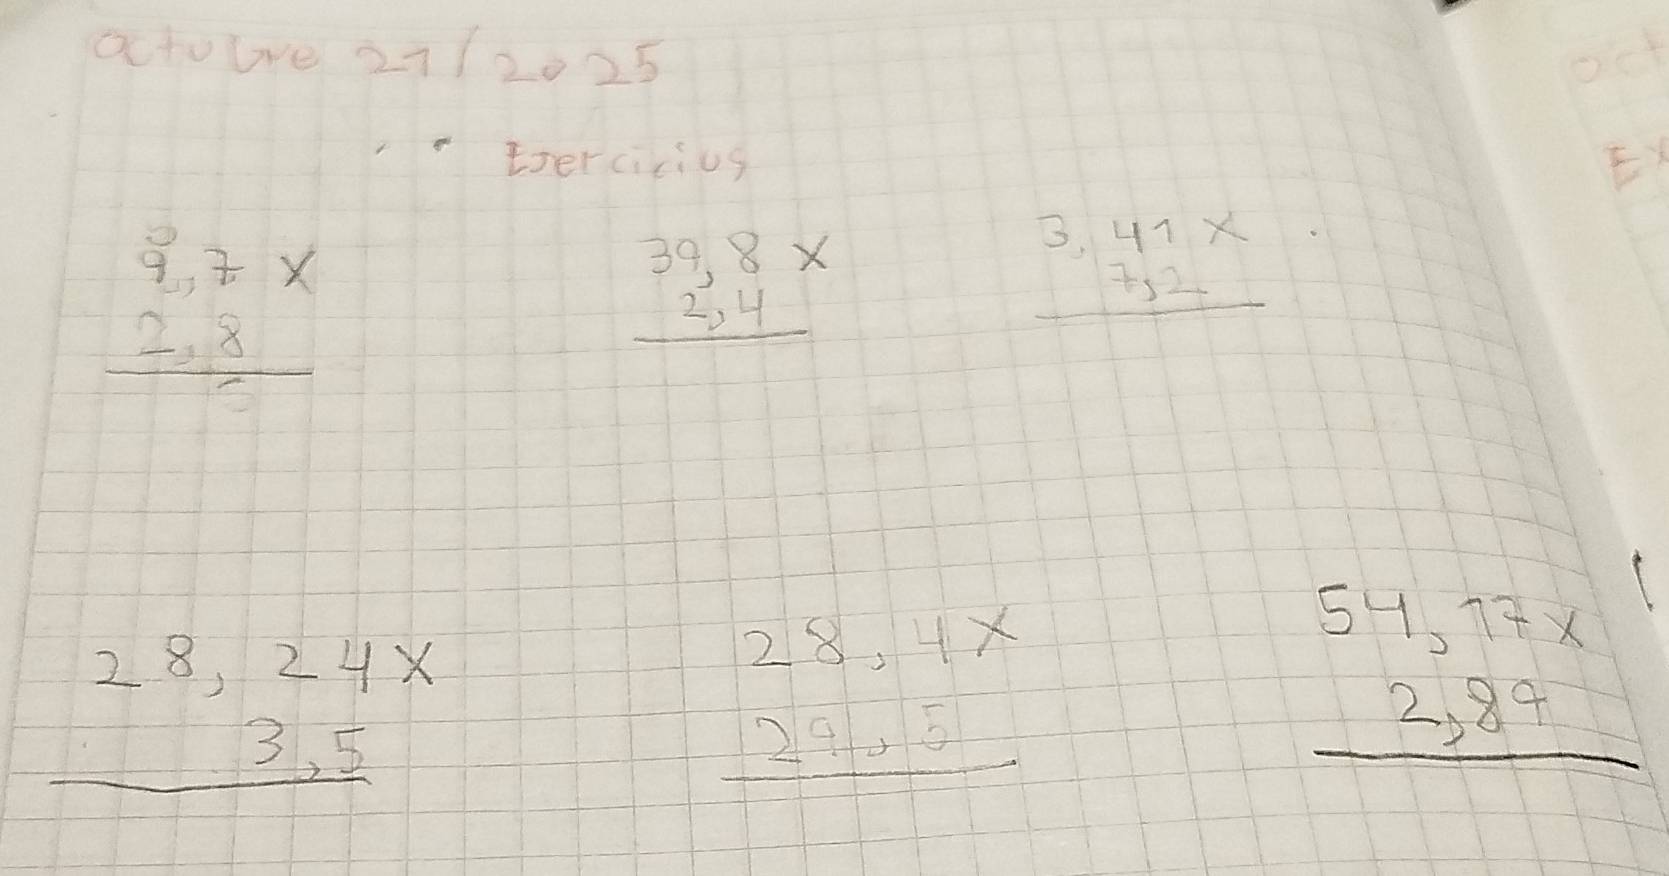 octubre 21/2025
Ejercicios
9,7 x
2,8
39,8 x
2,4
3,41 x
7,2
28,24x
3,5
28,4x
29,5
54,17x
2,89